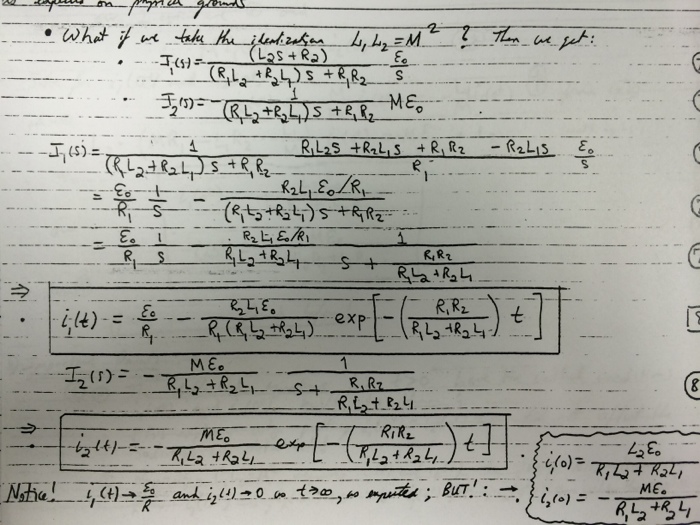 is expected on physical grounds
• What if we take the idealization L₁L₂ = M² ? Then we get:
• I₁(s) = (L₂s + R₂) / ((R₁L₂ + R₂L₁) s + R₁R₂) ℰ₀/s
• I₂(s) = - 1 / ((R₁L₂ + R₂L₁) s + R₁R₂) Mℰ₀
I₁(s) = 1 / ((R₁L₂ + R₂L₁) s + R₁R₂) (R₁L₂s + R₂L₁s + R₁R₂ - R₂L₁s) / R₁ ℰ₀/s
= ℰ₀/R₁ 1/s - (R₂L₁ℰ₀/R₁) / ((R₁L₂ + R₂L₁) s + R₁R₂)
= ℰ₀/R₁ 1/s - (R₂L₁ℰ₀/R₁) / (R₁L₂ + R₂L₁) 1 / (s + R₁R₂ / (R₁L₂ + R₂L₁))
⇒ • i₁(t) = ℰ₀/R₁ - R₂L₁ℰ₀ / (R₁(R₁L₂ + R₂L₁)) exp[-(R₁R₂ / (R₁L₂ + R₂L₁)) t]
I₂(s) = - Mℰ₀ / (R₁L₂ + R₂L₁) 1 / (s + R₁R₂ / (R₁L₂ + R₂L₁))
8
⇒ • i₂(t) = - Mℰ₀ / (R₁L₂ + R₂L₁) exp[-(R₁R₂ / (R₁L₂ + R₂L₁)) t]
Notice! i₁(t) → ℰ₀/R and i₂(t) → 0 as t→∞, as expected; BUT!: →
• i₁(0) = L₂ℰ₀ / (R₁L₂ + R₂L₁)
• i₂(0) = - Mℰ₀ / (R₁L₂ + R₂L₁)